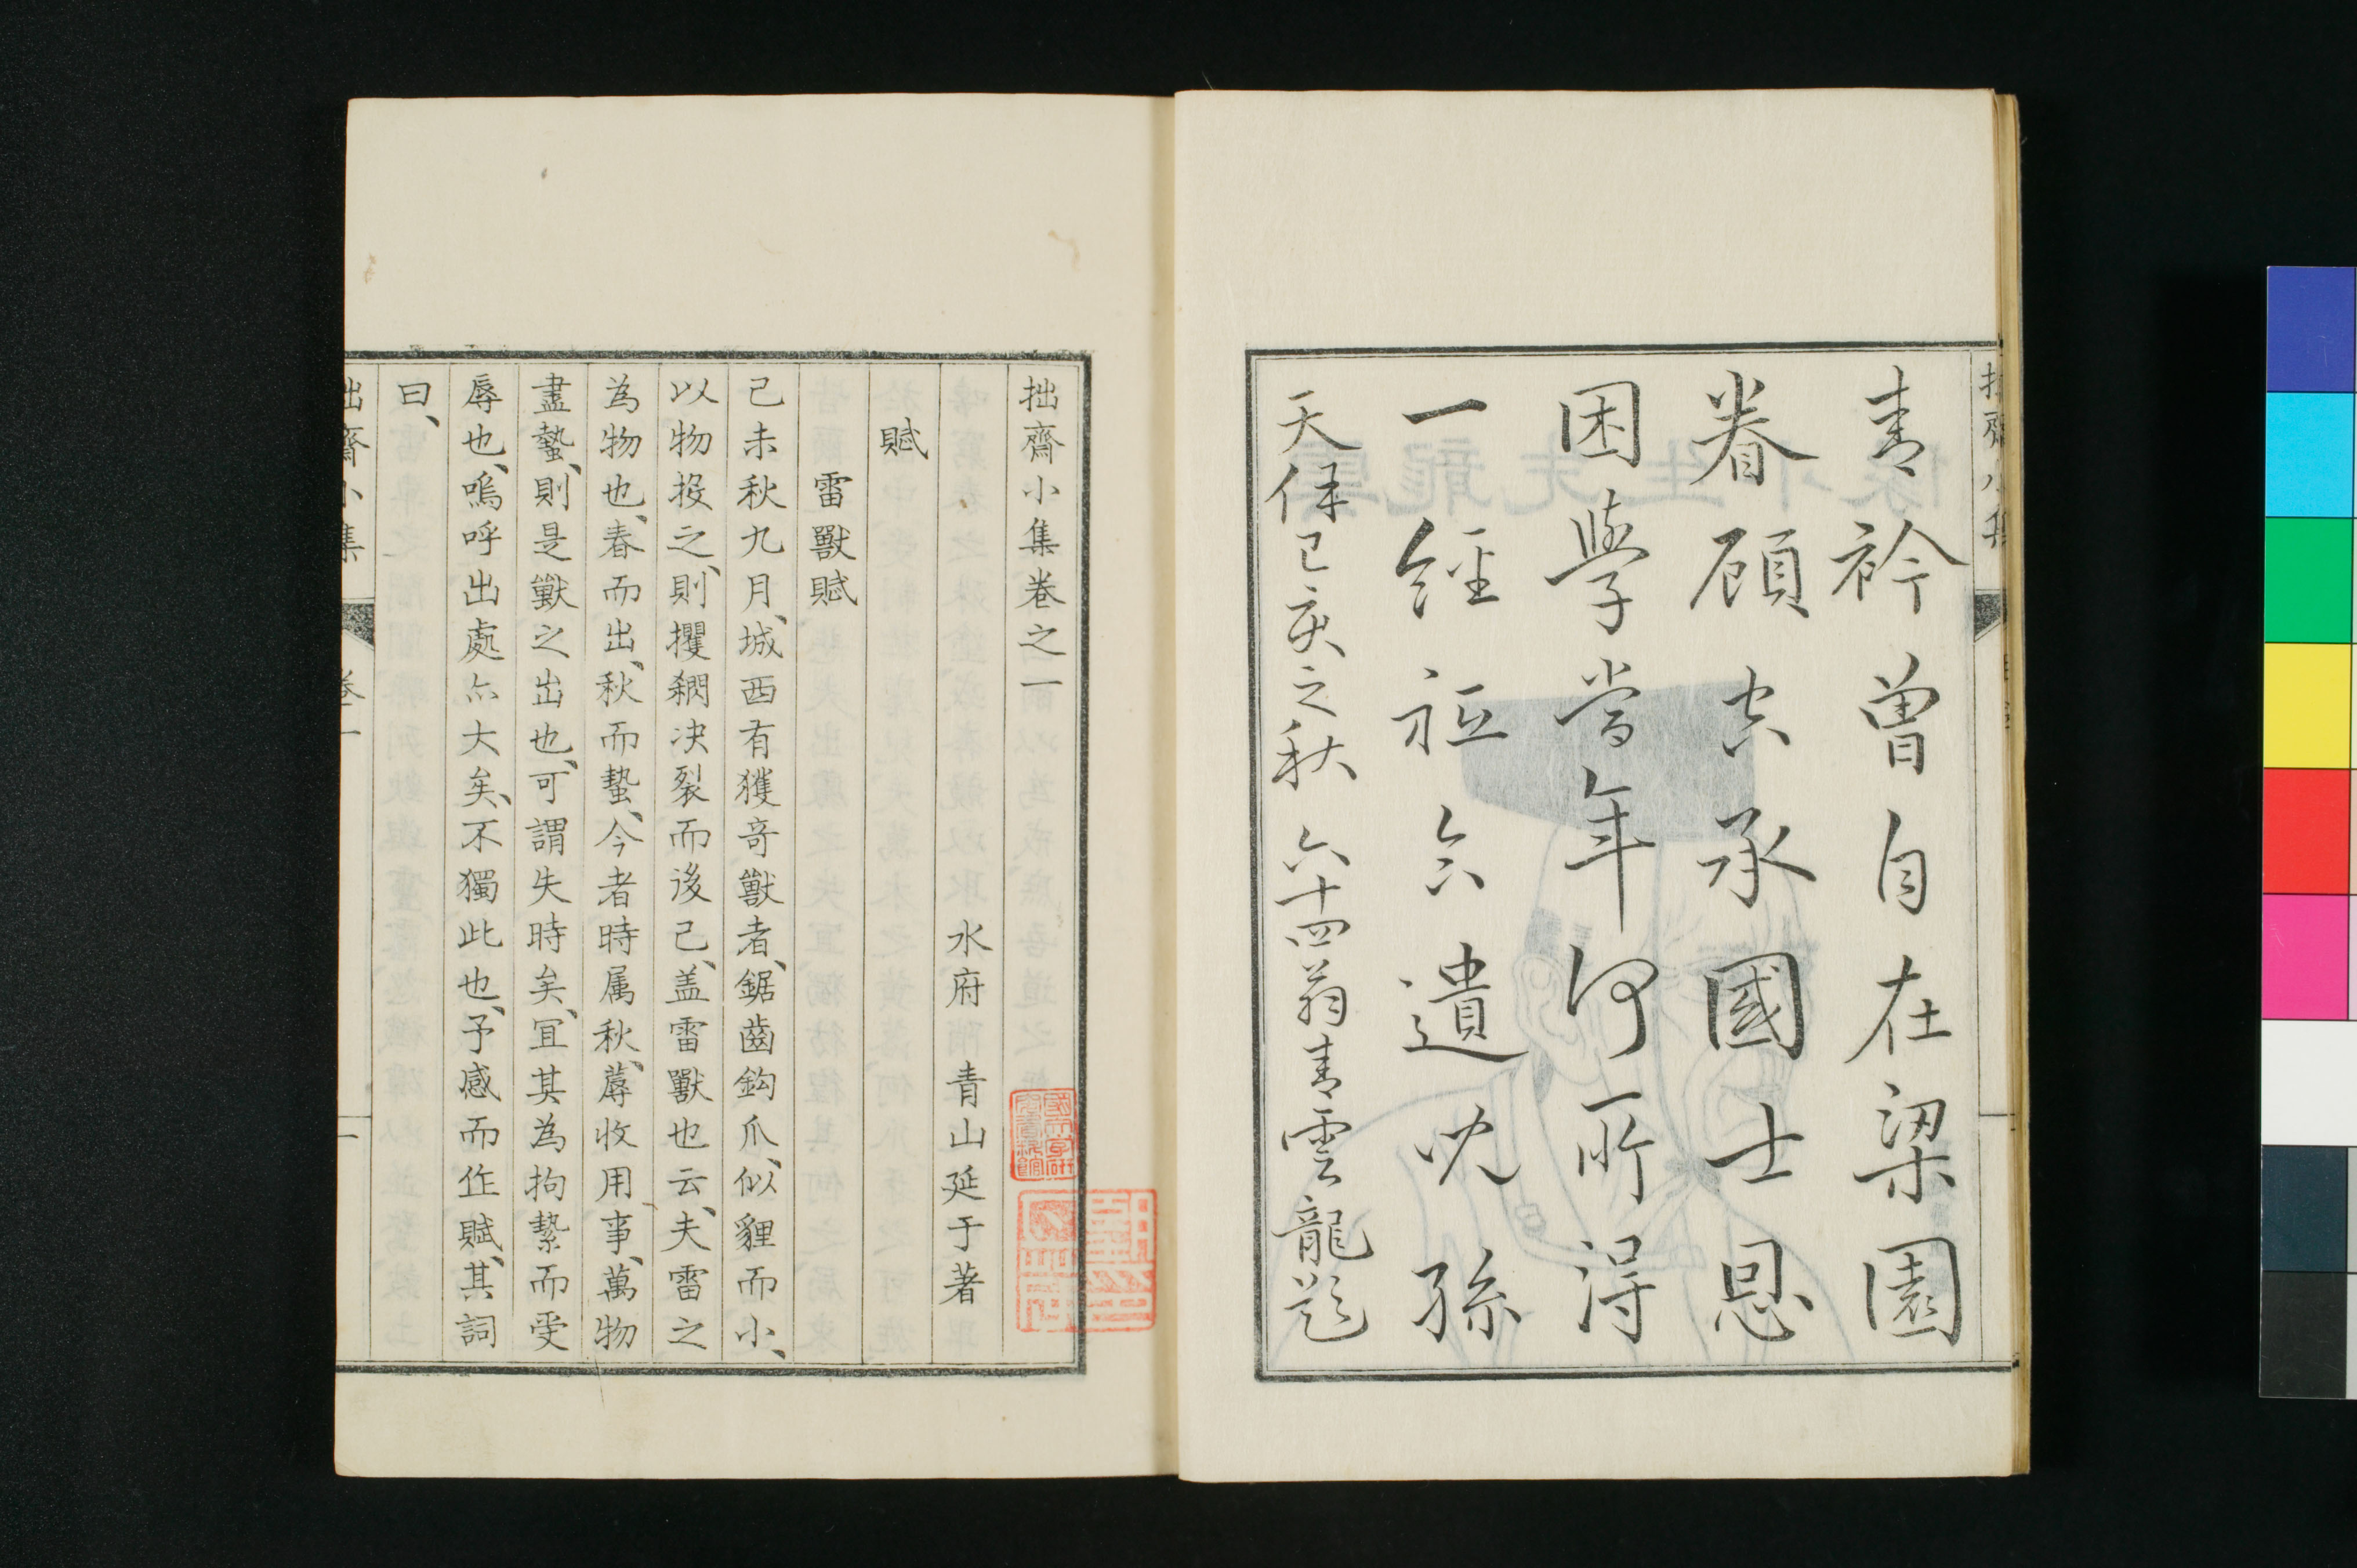 青衿曽自在梁園
眷顧忝承國士恩
困學當年何所得
一經祗合遺兒孫
天保己亥之秋 六十四翁青雲龍題
拙齋小集卷之一
水府 青山延于著
賦
雷獸賦
己未秋九月、城西有獲奇獸者、鋸齒鈎爪、似貍而小、
以物投之、則攫搁决裂而後已、盖雷獸也云、夫雷之
為物也、春而出、秋而蟄、今者時属秋、蓐收用事、萬物
盡蟄、則是獸之出也、可謂失時矣、冝其為拘縶而受
辱也、嗚呼出處亦大矣、不獨此也、予感而作賦、其詞
曰、
拙齋小集 卷一 一